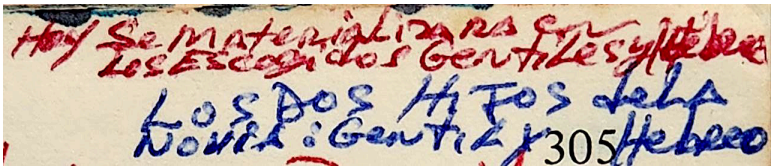 Hoy Se Materializara en
Los Escogidos Gentiles y Hebreo
Los Dos Hijos de La
Novia: Gentil y 305 Hebreo